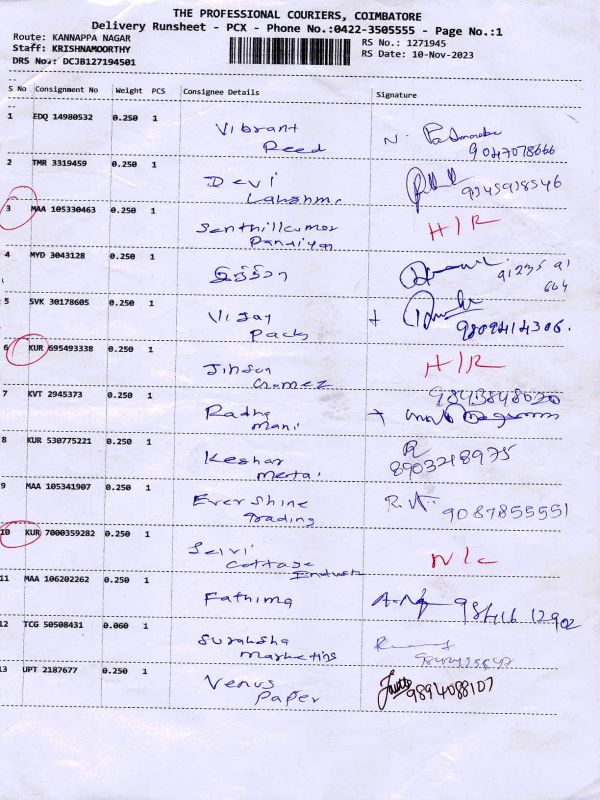 THE PROFESSIONAL COURIERS, COIMBATORE
Delivery Runsheet - PCX - Phone No.:0422-3505555 - Page No.:1
Route: KANNAPPA NAGAR
Staff: KRISHNAMOORTHY
DRS No.: DCJB127194501
RS No.: 1271945
RS Date: 10-Nov-2023
S No Consignment No Weight PCS Consignee Details Signature
1 EDQ 14980532 0.250 1 Vibrant Reed
2 TMR 3319459 0.250 1 Devi Lakshmi
3 MAA 105330463 0.250 1 Senthillkumar Pandiyan H/R
4 MYD 3043128 0.250 1
5 SVK 30178605 0.250 1 Vijay Packs
6 KUR 695493338 0.250 1 H/R
9843848020
7 KVT 2945373 0.250 1 Radha Mani
8 KUR 530775221 0.250 1 Keshar Mertai 8903218975
9 MAA 105341907 0.250 1 Ever Shine Trading R. 9087855551
10 KUR 7000359282 0.250 1 Selvi Cottage N/C
11 MAA 106202262 0.250 1 Fathima 98416 12902
12 TCG 50508431 0.060 1 Suraksha Marketing
13 UPT 2187677 0.250 1 Venus Paper 9894088107